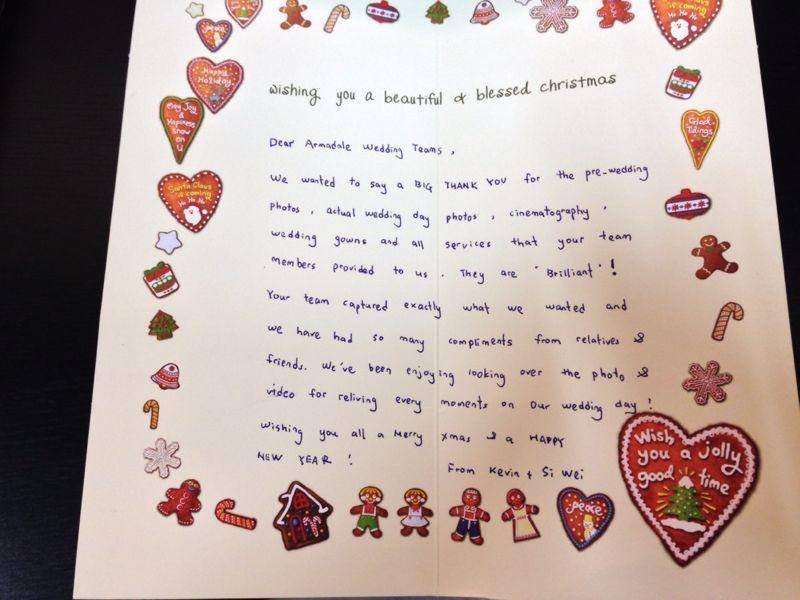 Claus
is coming
Ho Ho Ho
peace
Happy
Holiday
wishing you a beautiful & blessed christmas
Play Joy
&
Happiness
snow
on
U
Glad
Tidings
Dear Armadale Wedding Teams,
We wanted to say a BIG THANK YOU for the pre-wedding
photos, actual wedding day photos, cinematography,
wedding gowns and all services that your team
members provided to us. They are "Brilliant"!
Your team captured exactly what we wanted and
we have had so many compliments from relatives &
friends. We've been enjoying looking over the photo &
video for reliving every moments on our wedding day!
Wishing you all a Merry Xmas & a HAPPY
NEW YEAR!
From Kevin + Si Wei
Santa Claus
is coming
Ho Ho Ho
Wish
you a jolly
good time
peace